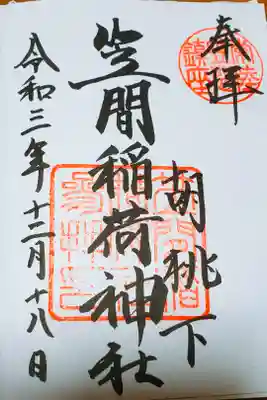 奉拝
胡桃下
笠間稲荷神社
令和三年十二月十八日